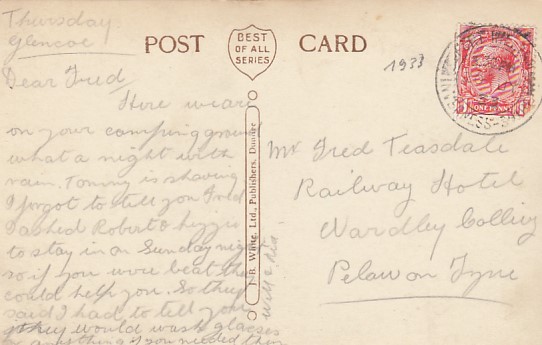 Thursday
Glencoe
POST
BEST
OF ALL
SERIES
CARD
1933
ONE PENNY
Dear Fred
Here we are
on your camping ground
what a night with
rain. Tommy is shaving
I forgot to tell you Fred
I asked Robert & Lizzie
to stay in on Sunday night
so if you were beat she
could help you. So they
said I had to tell you
they would wash glasses
or anything if you needed them
J. B. White, Ltd., Publishers, Dundee
Mr Fred Teasdale
Railway Hotel
Wardley Colliery
Pelaw on Tyne